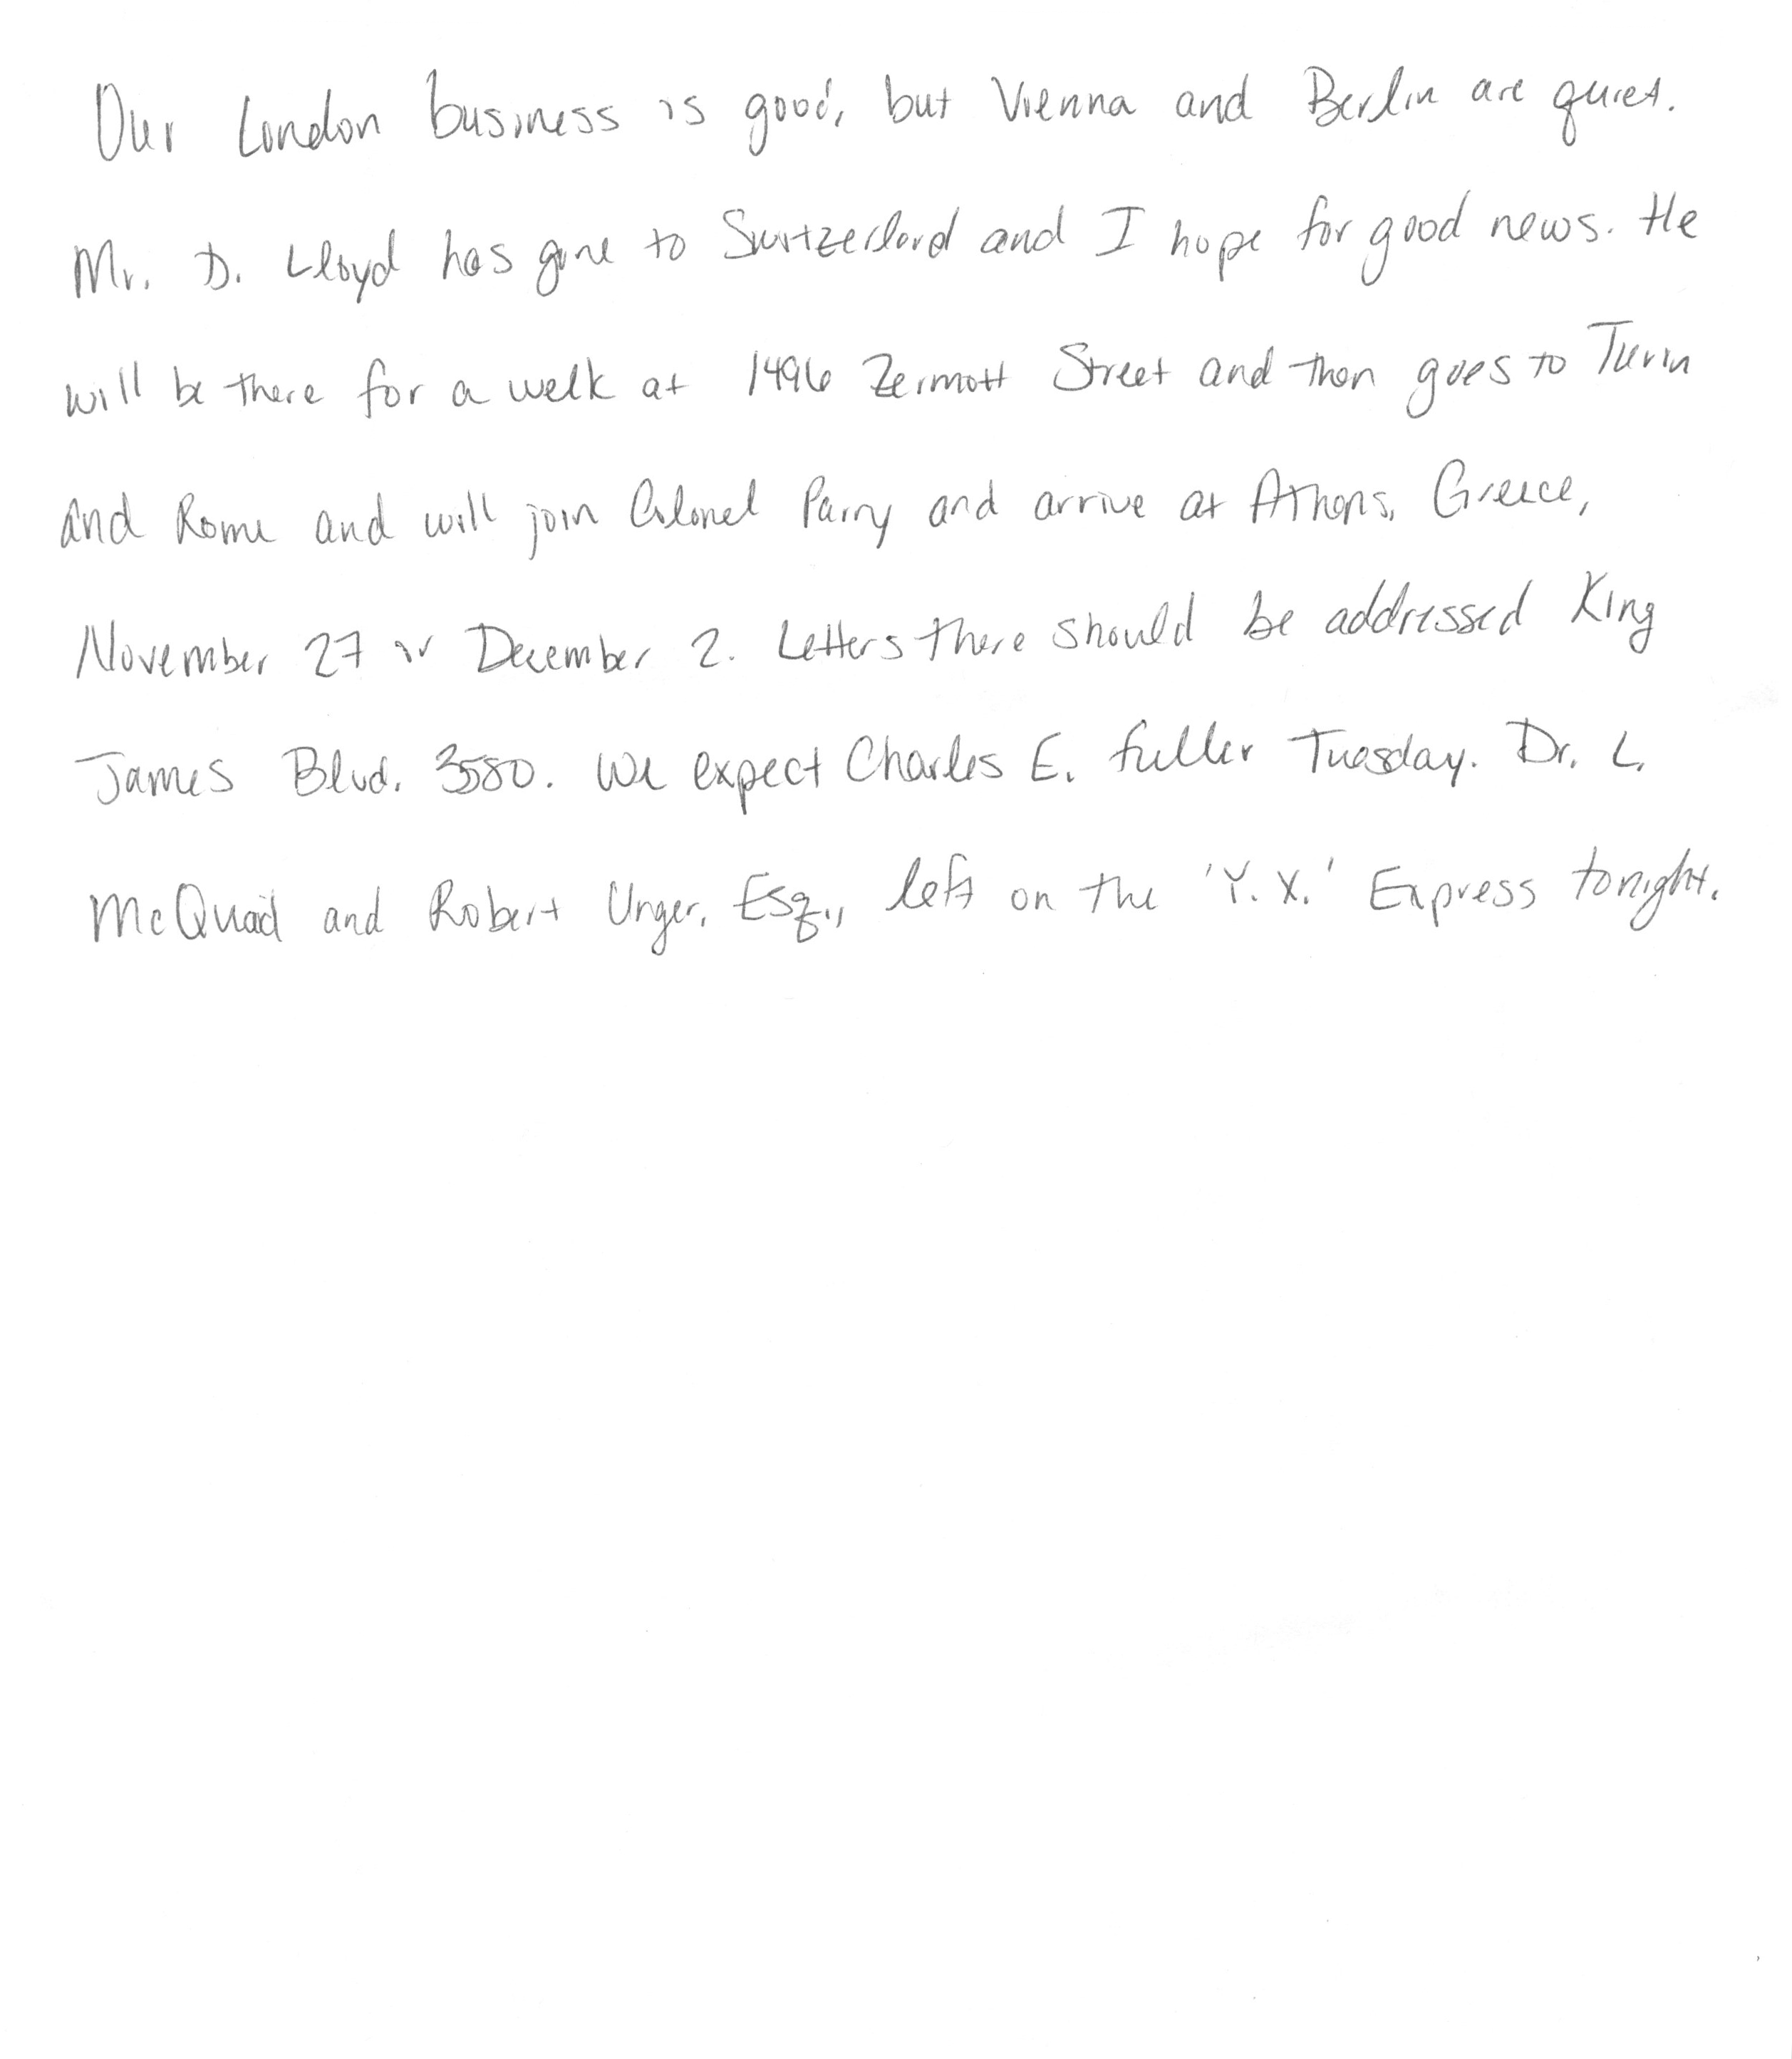 Our London business is good, but Vienna and Berlin are quiet.
Mr. D. Lloyd has gone to Switzerland and I hope for good news. He
will be there for a week at 1496 Zermott Street and then goes to Turin
and Rome and will join Colonel Parry and arrive at Athens, Greece,
November 27 or December 2. Letters there should be addressed King
James Blvd. 3580. We expect Charles E. Fuller Tuesday. Dr. L.
McQuaid and Robert Unger, Esq., left on the 'Y.X.' Express tonight.